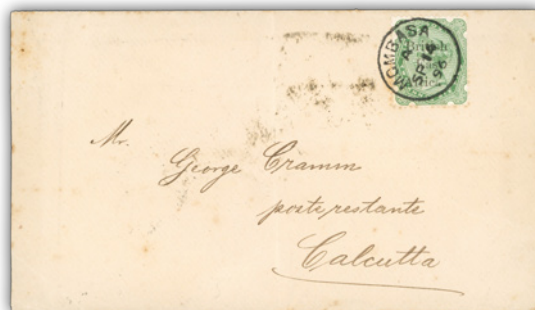 MOMBASA
A
SP 14
96
British
Mr.
George Cramm
poste restante
Calcutta